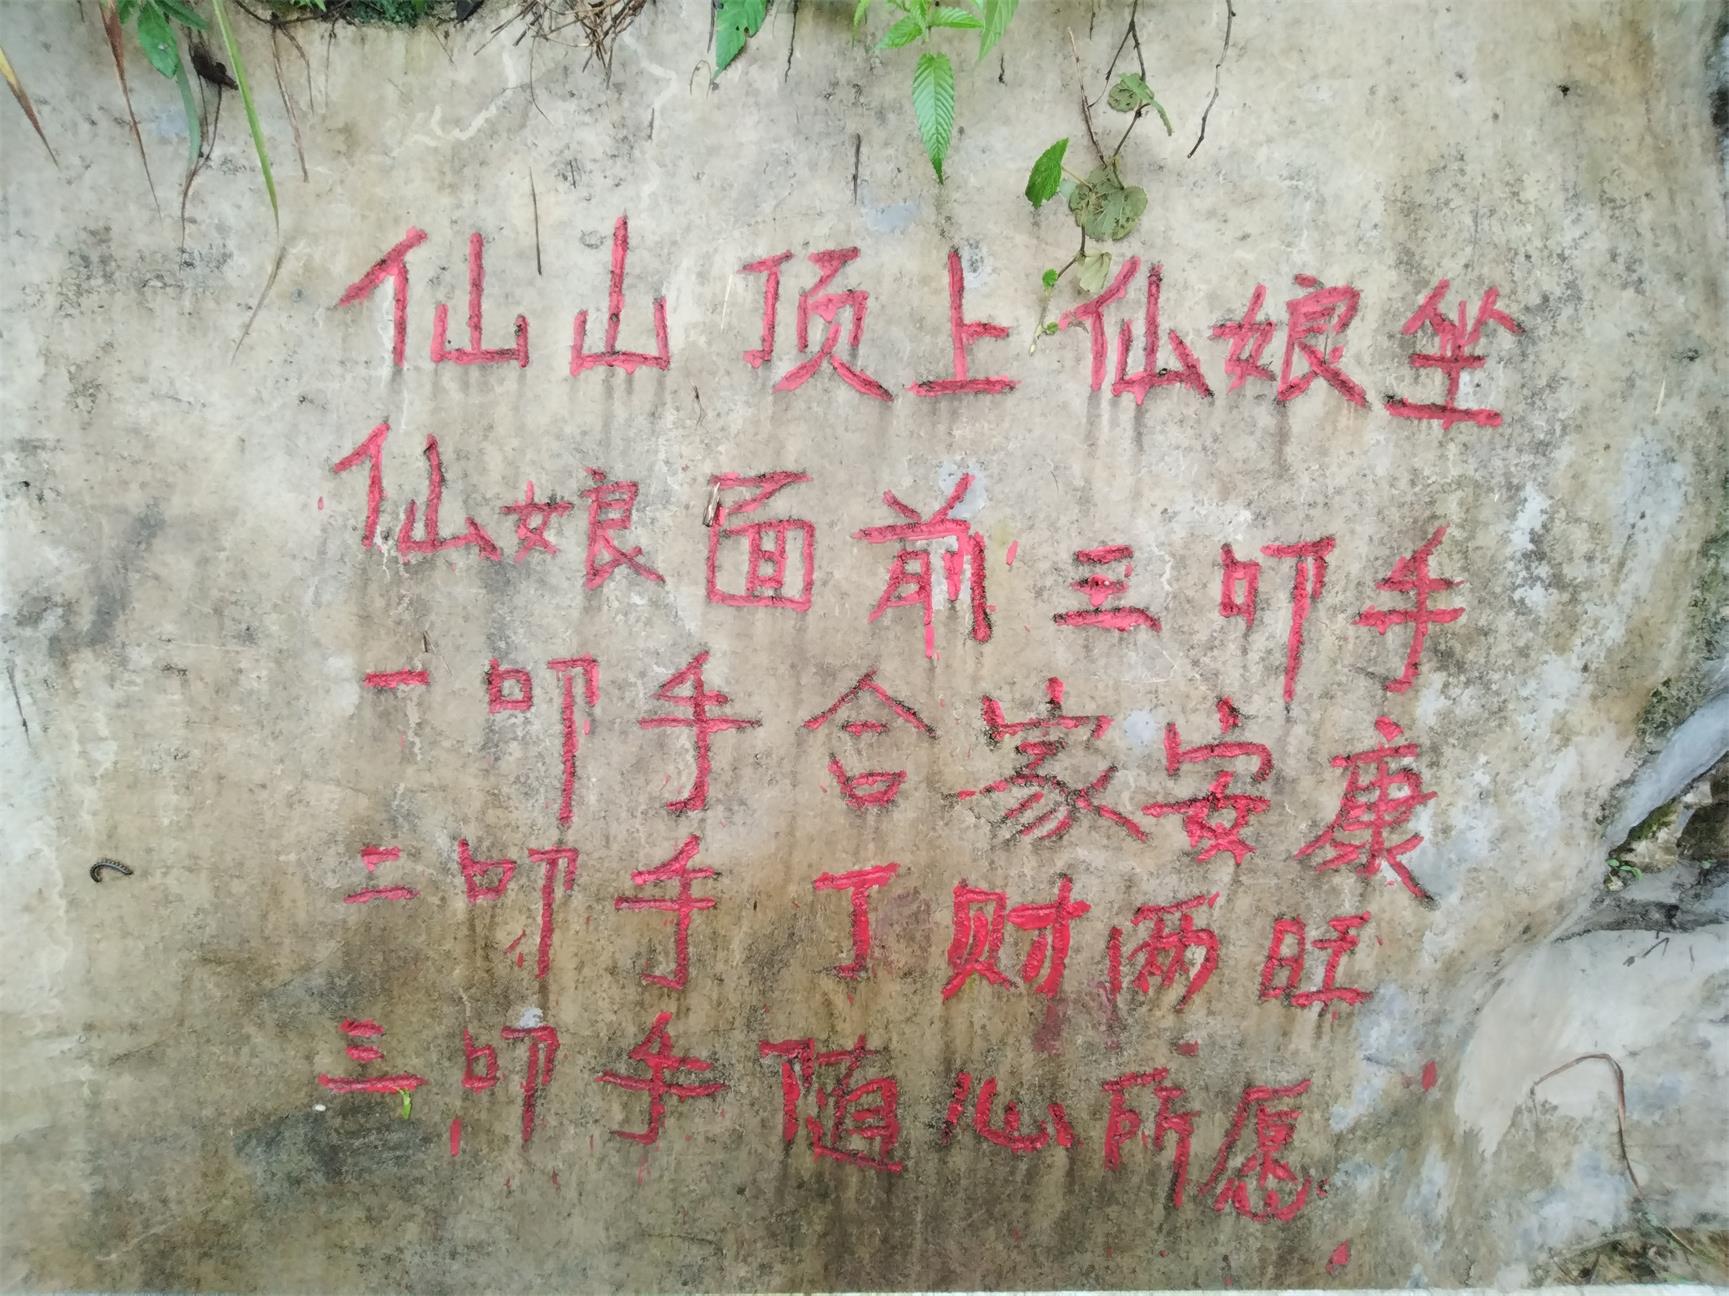 仙山顶上仙娘坐
仙娘面前三叩手
一叩手合家安康
二叩手丁财两旺
三叩手随心所愿